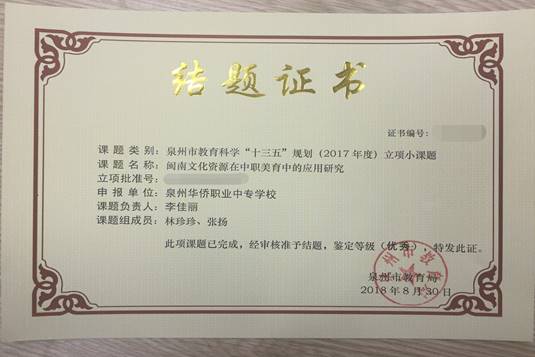 结题证书
证书编号：
课题类别：泉州市教育科学“十三五”规划（2017年度）立项小课题
课题名称：闽南文化资源在中职美育中的应用研究
立项批准号：
申报单位：泉州华侨职业中专学校
课题负责人：李佳丽
课题组成员：林珍珍、张扬
此项课题已完成，经审核准予结题，鉴定等级（优秀），特发此证。
泉州市教育局
2018年8月30日